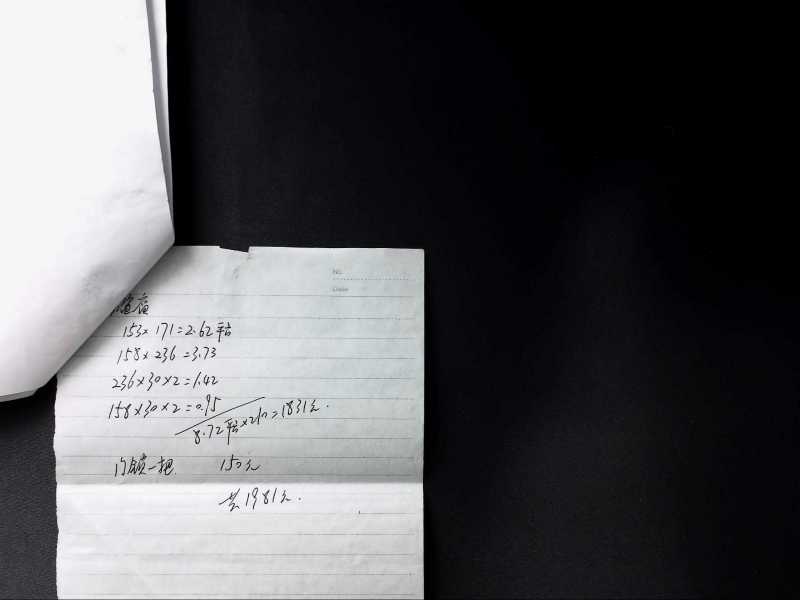 No.
Date
153×171=2.62平方
158×236=3.73
236×30×2=1.42
158×30×2=0.95
8.72平方×210=1831元.
门锁一把 150元
共1981元.